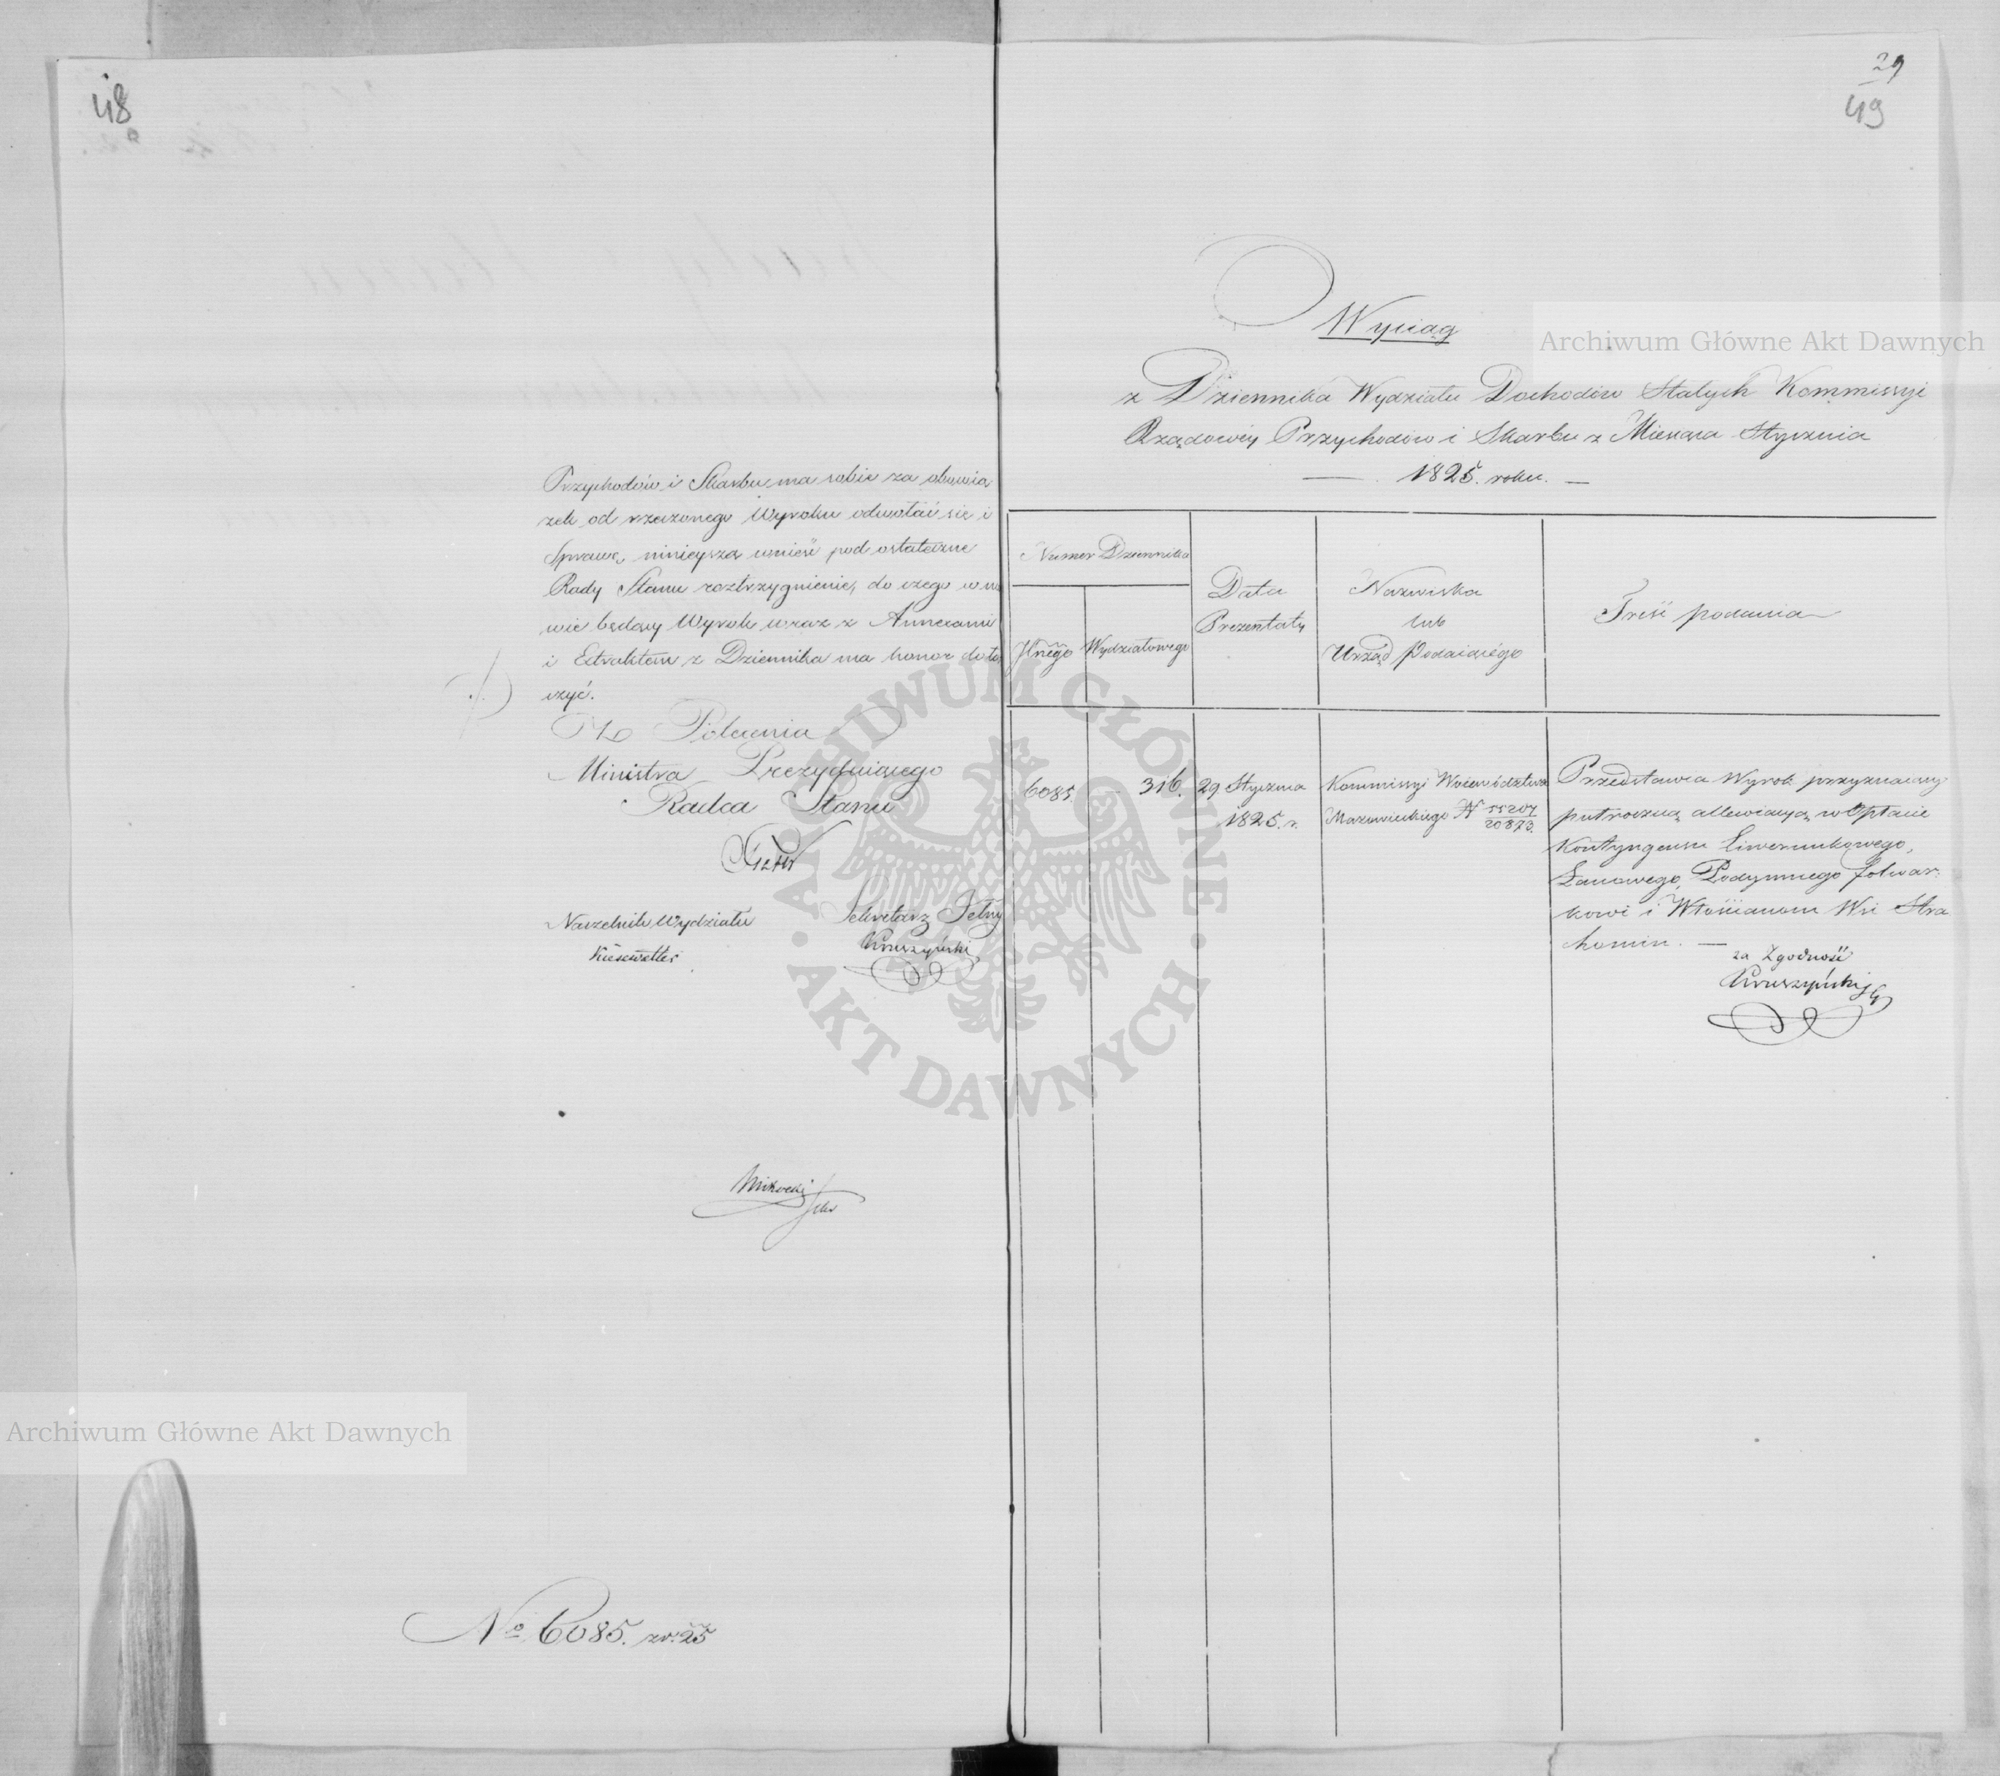 48
Przychodów i Skarbu ma sobie za obowią
zek od rzeczonego Wyroku odwołać się i
Sprawę ninieyszą wnieść pod ostateczne
Rady Stanu roztrzygnienie, do czego w mo
wie będący Wyrok wraz z Annexami
i Extraktem z Dziennika ma honor dołą
czyć.
Z Polecenia
Ministra Prezyduiącego
Radca Stanu
Naczelnik Wydziału
Kiesewetter
Sekretarz Jlny
Kruszyński
No 6085. z r. 25
29
49
Wyciąg
z Dziennika Wydziału Dochodów Stałych Kommissyi
Rządowéy Przychodów i Skarbu z Miesiąca Stycznia
1825. roku.
Numer Dziennika
Jlnego
Wydziałowego
Data
Prezentaty
Nazwiska
lub
Urząd Podaiącégo
Treść podania
6085.
316.
29 Stycznia
1825. r.
Kommissyi Woiewództwa
Mazowieckiego N 55207
20873.
Przedstawia Wyrok przyznaiący
putroczną allewiacyą w Opłacie
Kontyngensu Liwerunkowego,
Łanowego, Podymnego folwar
kowi i Włościanom Wsi Stra
chomin.
za Zgodność
Kruszyński
Archiwum Główne Akt Dawnych
Archiwum Główne Akt Dawnych
ARCHIWUM GŁÓWNE · AKT DAWNYCH ·